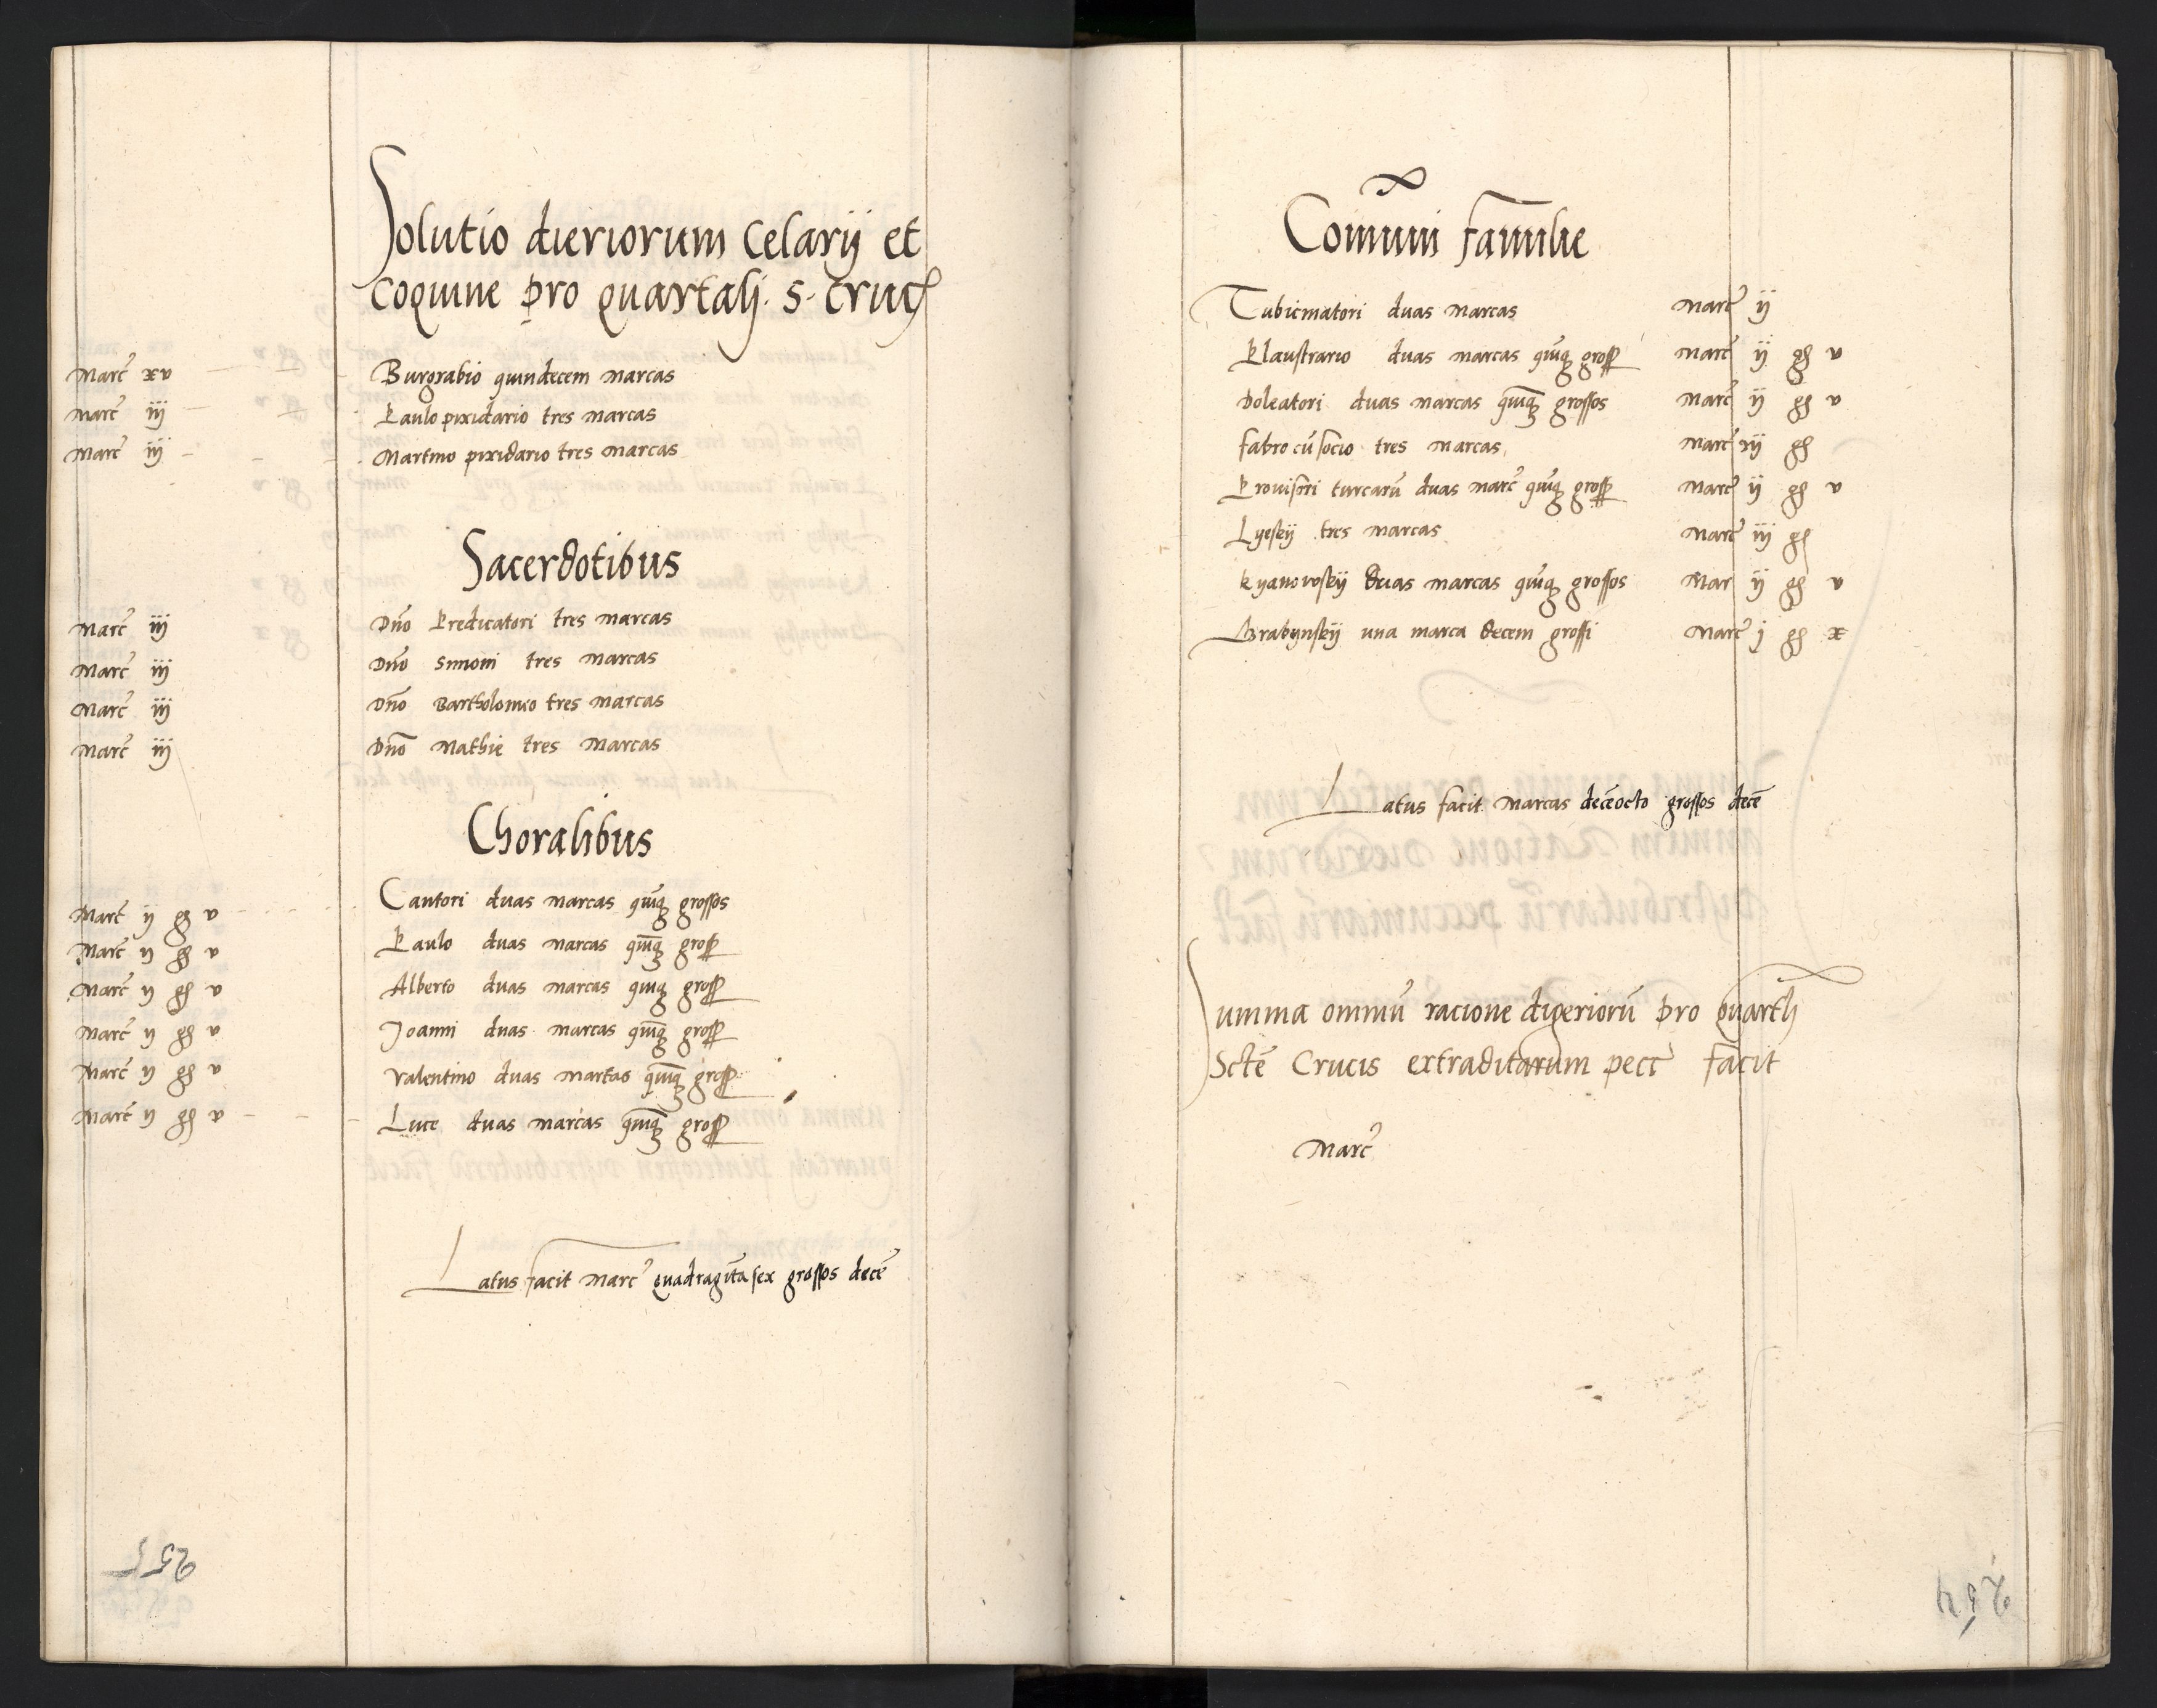 Solutio dieriorum Celarij et
coquine pro quartalj. s. cruc
Marc̃ xv Burgrabio quindecem marcas
Marc̃ iij Paulo pixidario tres marcas
Marc̃ iij Martino pixidario tres marcas
Sacerdotibus
Marc̃ iij Dn̄o Predicatori tres marcas
Marc̃ iij Dn̄o Simoni tres marcas
Marc̃ iij Dn̄o Bartholomeo tres marcas
Marc̃ iij Dn̄o Mathie tres marcas
Choralibus
Marc̃ ij gȝ v Cantori duas marcas quīqȝ grossos
Marc̃ ij gȝ v Paulo duas marcas quīqȝ gross
Marc̃ ij gȝ v Alberto duas marcas quīqȝ gross
Marc̃ ij gȝ v Joanni duas marcas quīqȝ gross
Marc̃ ij gȝ v Valentino duas marcas quīqȝ gross
Marc̃ ij gȝ v Luce duas marcas quīqȝ gross
Latus facit marc̃ quadragīta sex grossos decē
255
Com̄uni familie
Tubicinatori duas marcas Marc̃ ij
Claustrario duas marcas quīqȝ gross Marc̃ ij gȝ v
Doleatori duas marcas quīqȝ grossos Marc̃ ij gȝ v
fabro cū socio tres marcas Marc̃ iij gȝ
Provisori turcarū duas marc̃ quīqȝ gross Marc̃ ij gȝ v
Lyeskij tres marcas Marc̃ iij gȝ
Kyanowskij duas marcas quīqȝ grossos Mar ij gȝ v
Grabynskij una marca decem grossi Marc̃ j gȝ x
Latus facit marcas decēocto grossos decē
Summa omniū racione dyeriorū pro quart
Sctē Crucis extraditarum pecc̄ facit
Marc̃
254